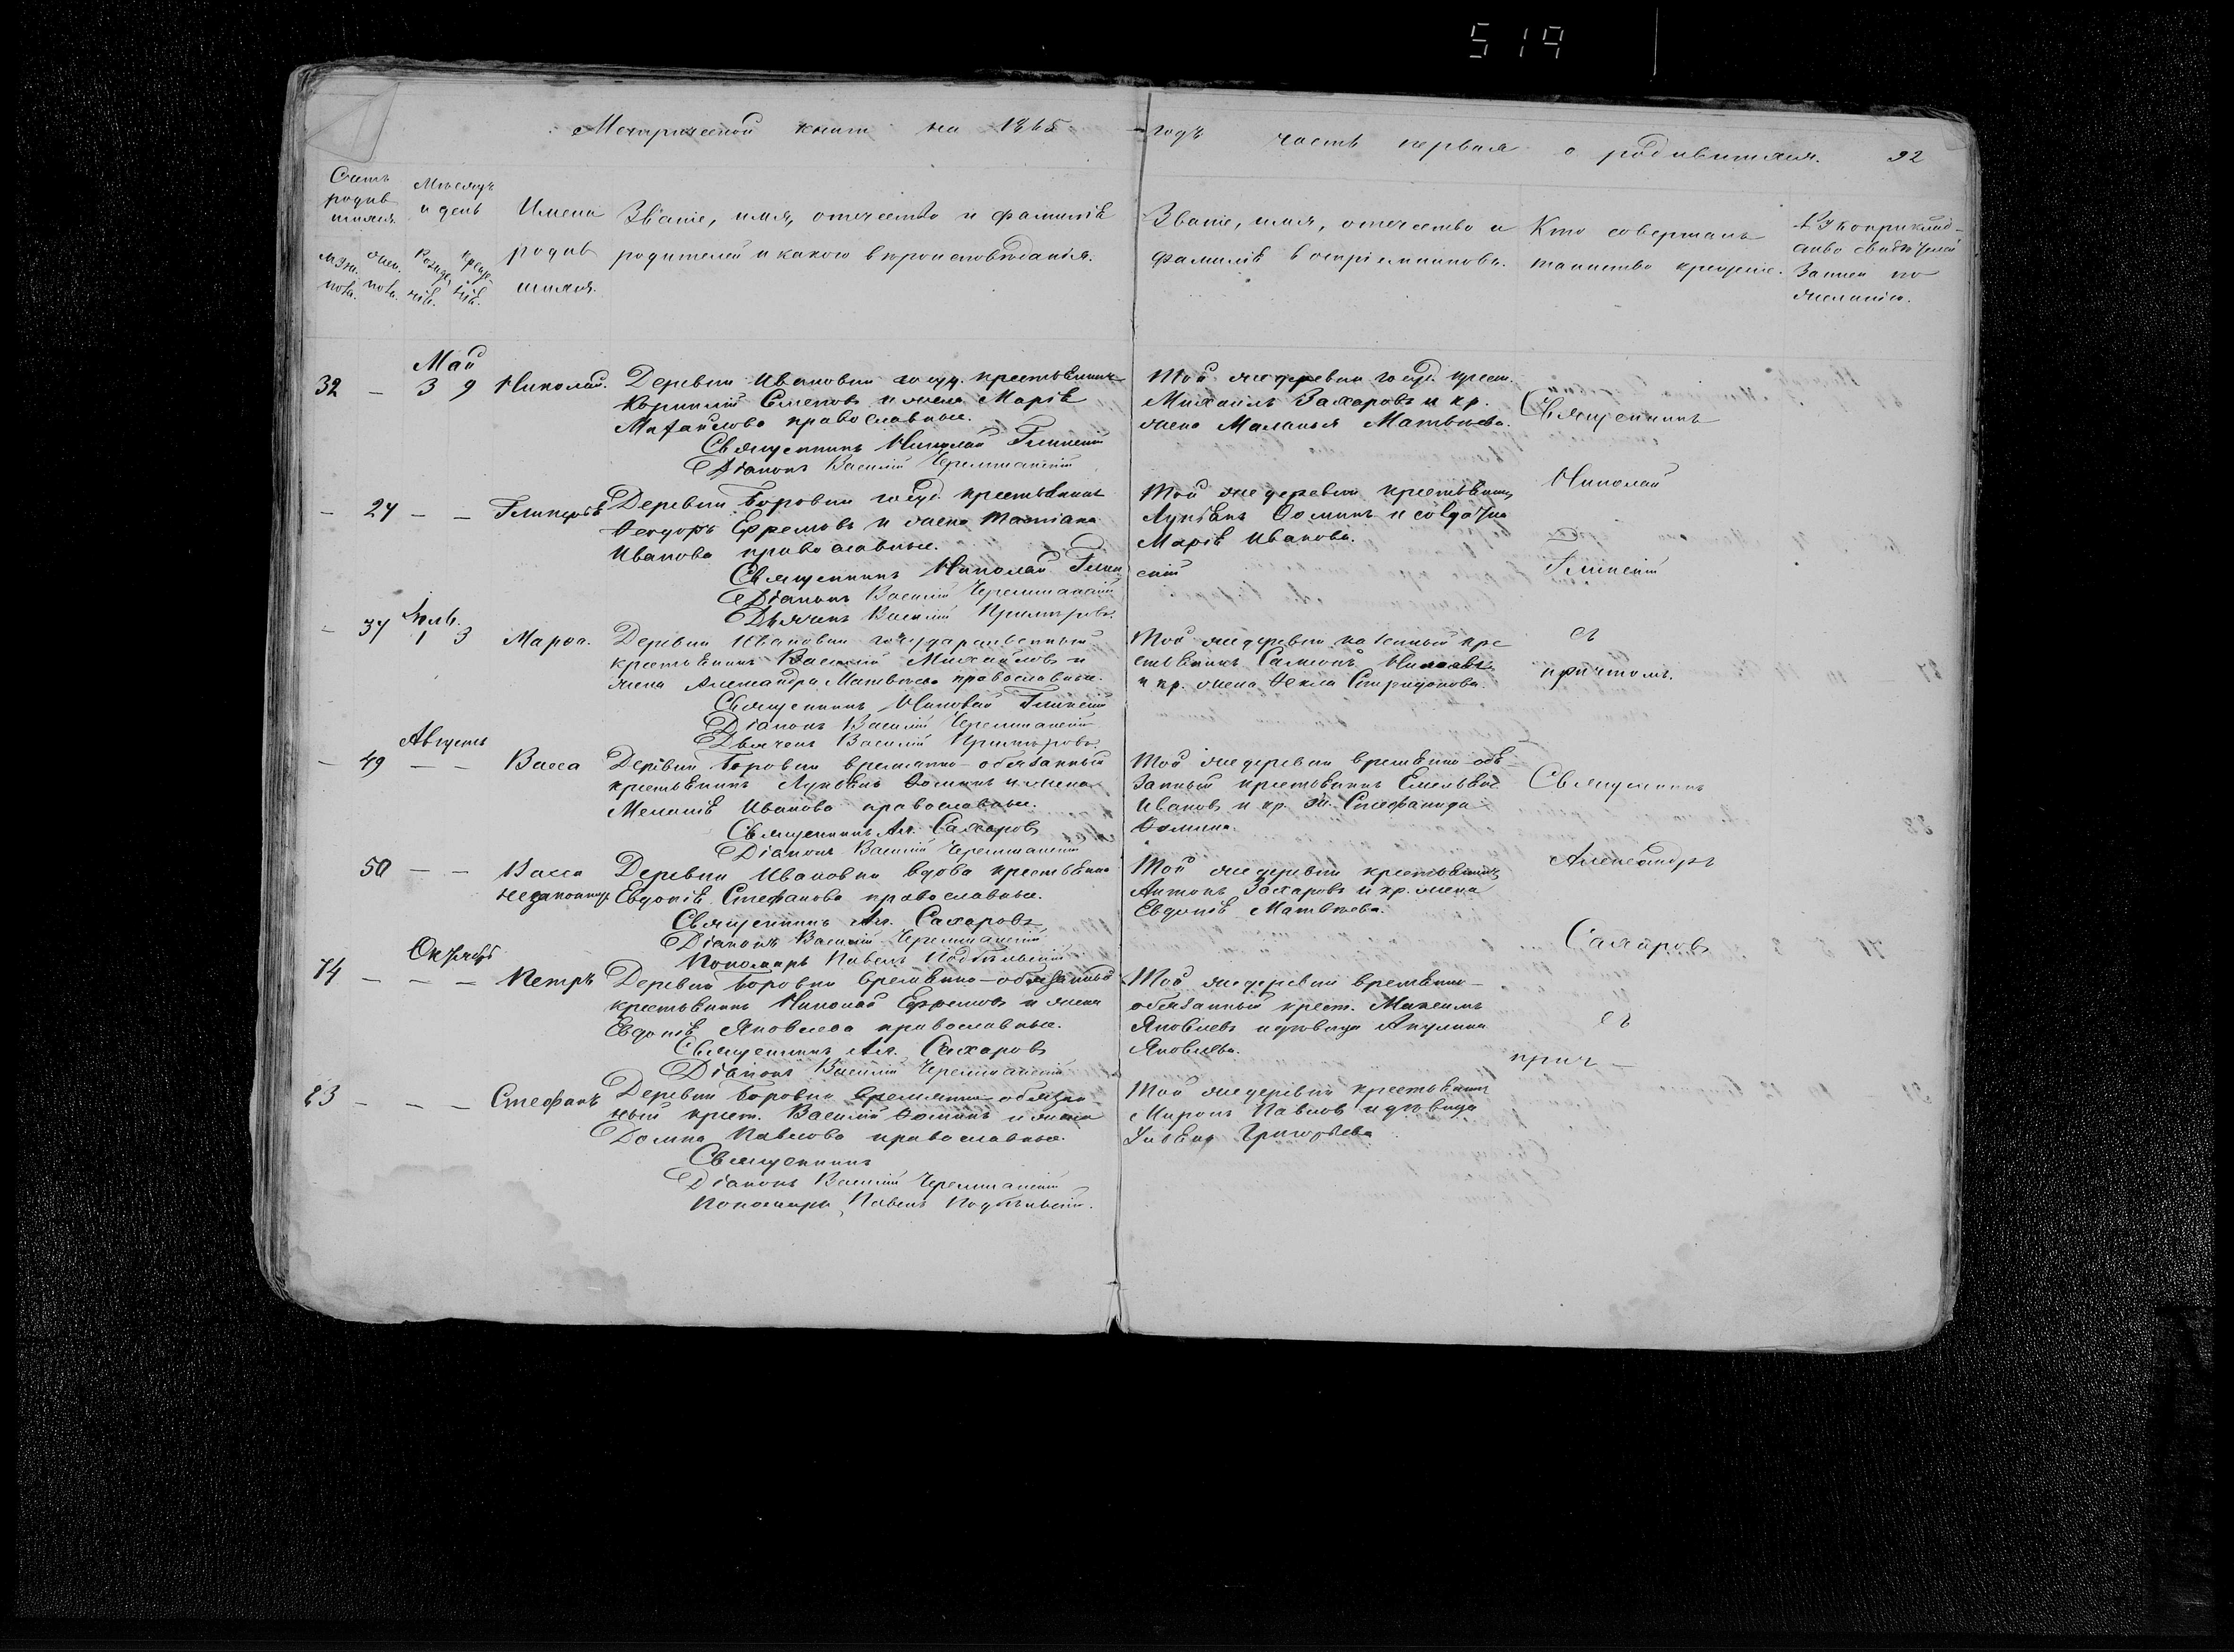 519
Метрической книги на 1865 годъ часть первая о родившихся. 92
Счетъ родив шихся.
Мѣсяцъ и день
Имена родив шихся.
Званіе, имя, отечество и фамилія
родителей и какого вѣроисповѣданія.
Званіе, имя, отечество и
фамилія воспріемниковъ.
Кто совершалъ
таинство крещенія.
Рукоприклад-
ство свидѣтелей
записи по
желанію.
Май
32 - 3 9 Николай.
Деревни Ивановки госуд. крестьянинъ
Корнилій Семеновъ и жена Марія
Михайлова православные.
Священникъ Николай Глинскій
Діаконъ Василій Черемшанскій
Той же деревни госуд. крест.
Михаилъ Захаровъ и кр.
жена Маланья Матвѣева.
Священникъ
Николай
Глинскій
съ
причтомъ.
- 24 - - Гликерія
Деревни Боровки госуд. крестьянинъ
Ѳеодоръ Ефремовъ и жена Татіана
Иванова православные.
Священникъ Николай Глин скій
Діаконъ Василій Черемшанскій
Дьячекъ Василій
Той же деревни крестьянинъ
Лукіанъ Ѳоминъ и солдатка
Марія Иванова.
Іюль.
- 37 1 3 Марѳа.
Деревни Ивановки государственный
крестьянинъ Василій Михайловъ и
жена Александра Матвѣева православные.
Священникъ Николай Глинскій
Діаконъ Василій Черемшанскій
Дьячекъ Василій
Той же деревни казенный кре
стьянинъ
и кр. жена Ѳекла Спиридонова.
Августъ
- 49 - - Васса
Деревни Боровки временно-обязанный
крестьянинъ Лукьянъ Ѳоминъ и жена
Меланія Иванова православные.
Священникъ Ал. Сахаровъ
Діаконъ Василій Черемшанскій
Той же деревни временно-обя
занный крестьянинъ Емельянъ
Ивановъ и кр. ж. Стефанида
Ѳомина.
Священникъ
Александръ
Сахаровъ
съ
прич-
50 - - Васса
незаконнор.
Деревни Ивановки вдова крестьянка
Евдокія Стефанова православные.
Священникъ Ал. Сахаровъ
Діаконъ Василій Черемшанскій
Пономарь Павелъ Подбѣльскій
Той же деревни крестьянинъ
Антонъ Захаровъ и кр. жена
Евдокія Матвѣева.
Октябрь
74 - - - Петръ
Деревни Боровки временно-обязанный
крестьянинъ Николай Ефремовъ и жена
Евдокія Яковлева православные.
Священникъ Ал. Сахаровъ
Діаконъ Василій Черемшанскій
Той же деревни временно-
обязанный крест. Максимъ
Яковлевъ и дѣвица Акулина
Яковлева.
83 - - - Стефанъ
Деревни Боровки временно обязан
ный крест. Василій Ѳоминъ и жена
Домна Павлова православные.
Священникъ
Діаконъ Василій Черемшанскій
Пономарь Павелъ Подбѣльскій.
Той же деревни крестьянинъ
Миронъ Павловъ и дѣвица
Григорьева